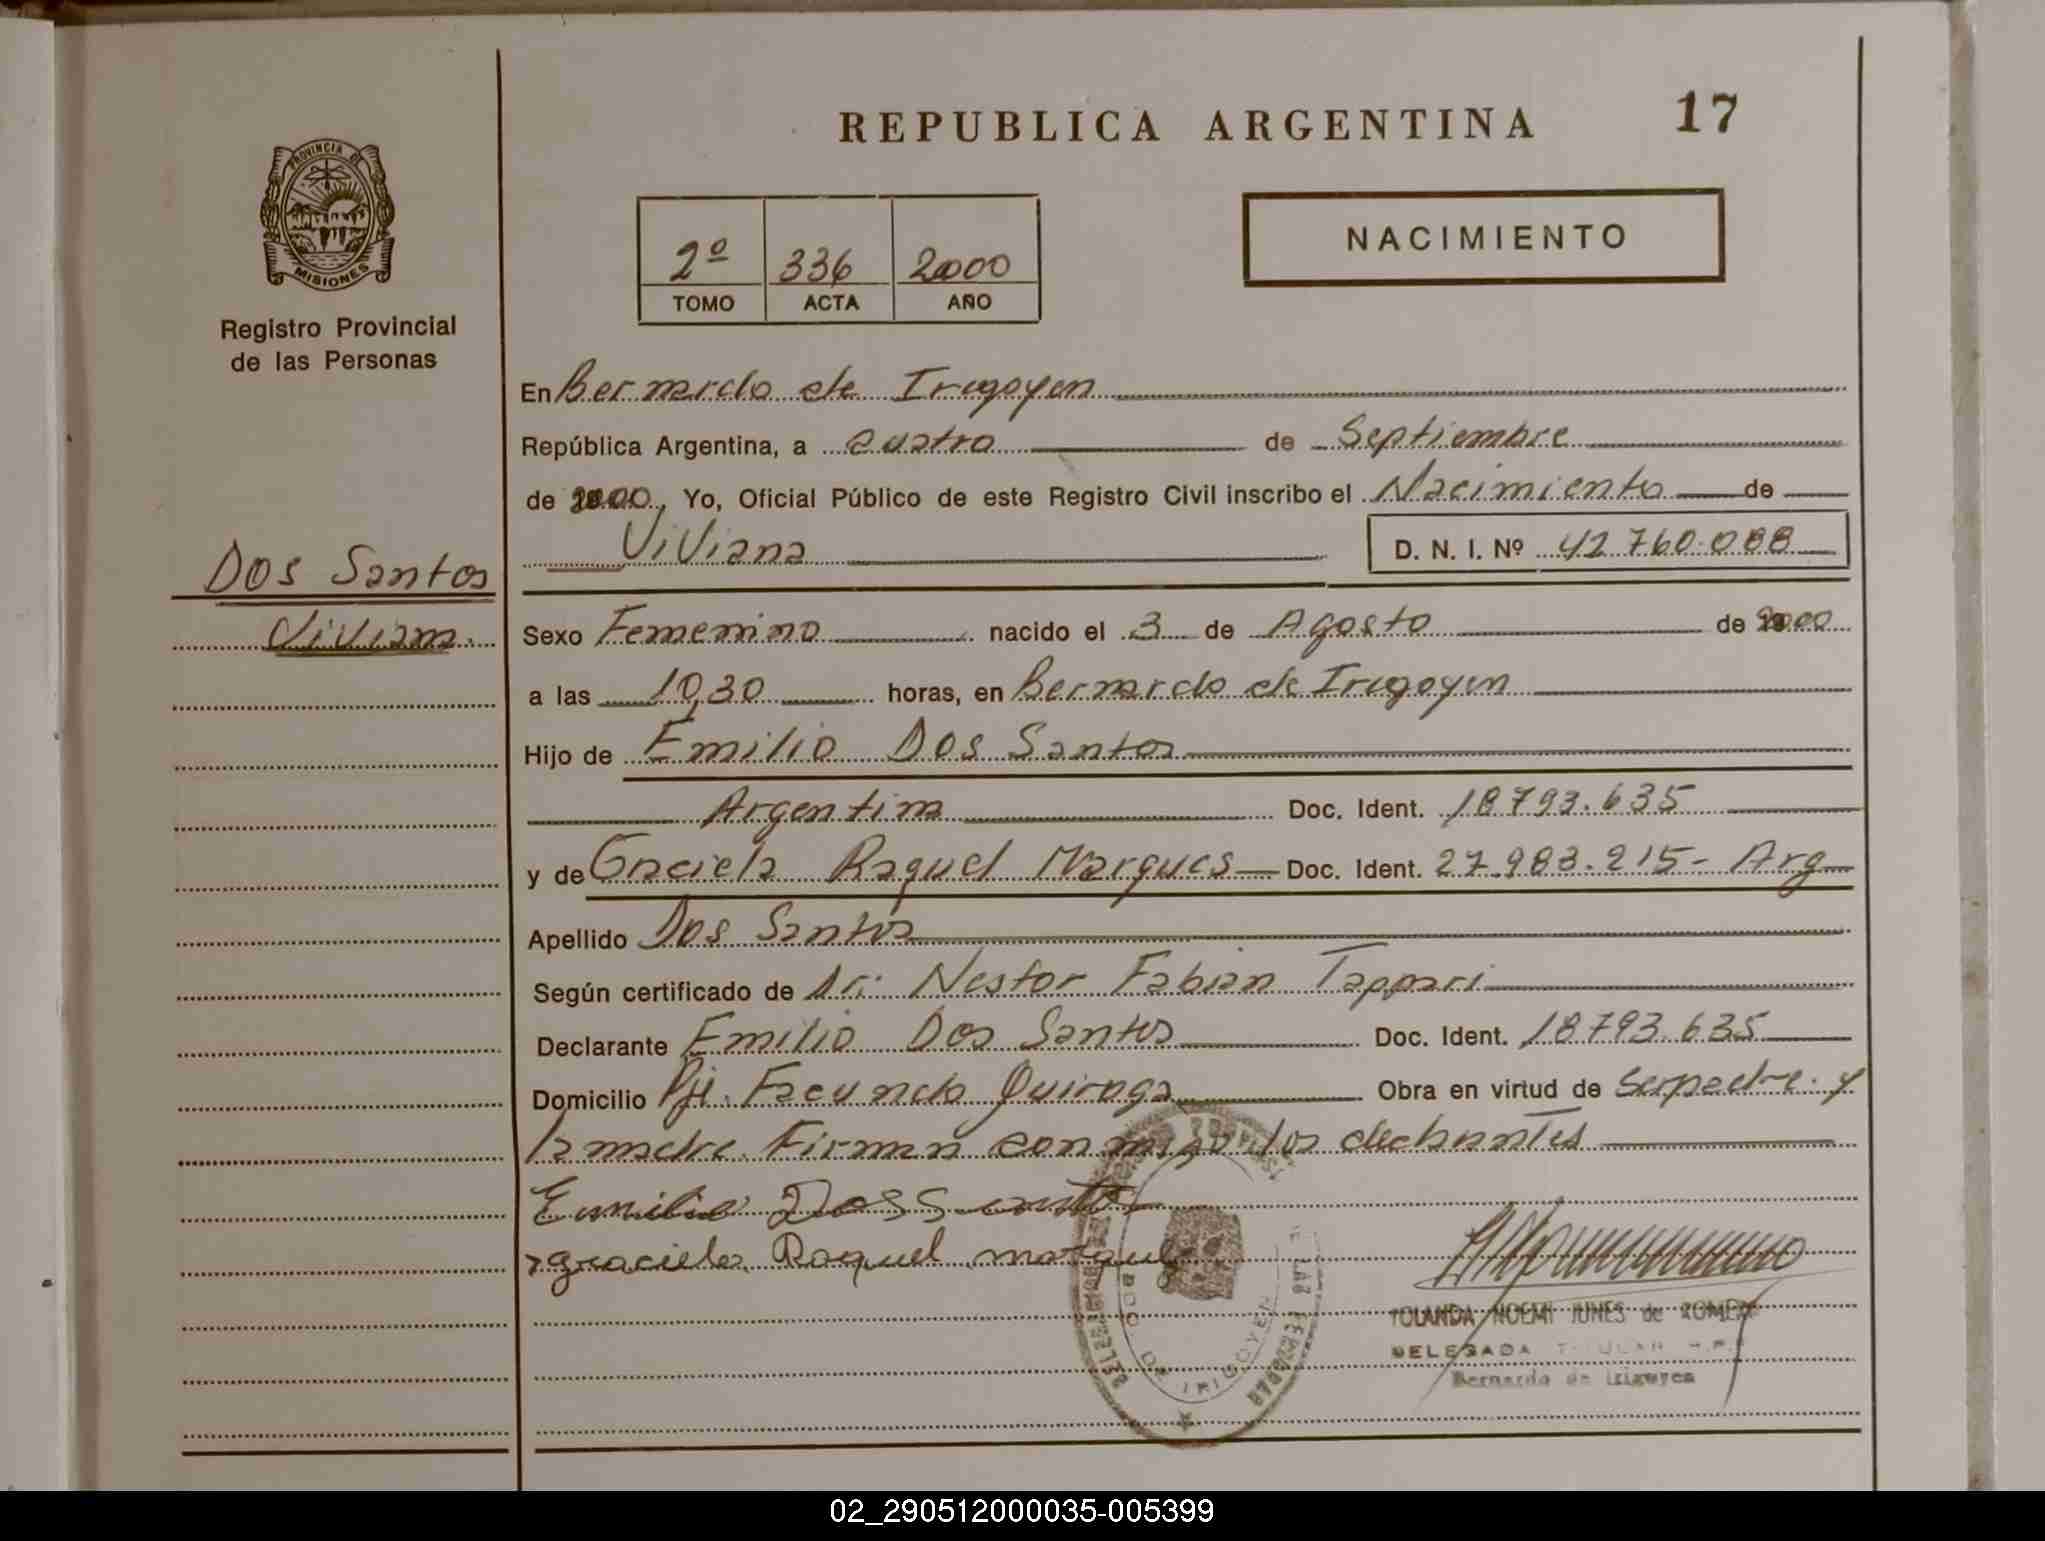 REPUBLICA ARGENTINA 17
PROVINCIA DE
MISIONES
Registro Provincial
de las Personas
NACIMIENTO
2º 336 2000
TOMO ACTA AÑO
En Bernardo de Irigoyen
República Argentina, a cuatro de Septiembre
de 2000, Yo, Oficial Público de este Registro Civil inscribo el Nacimiento de
Viviana D. N. I. Nº 42 760.088
Dos Santos
Viviana.
Sexo Femenino nacido el 3 de Agosto de 2000
a las 10,30 horas, en Bernardo de Irigoyen
Hijo de Emilio Dos Santos
Argentina Doc. Ident. 18793.635
y de Graciela Raquel Marques Doc. Ident. 27.983.215- Arg
Apellido Dos Santos
Según certificado de Dr: Nestor Fabian Tappari
Declarante Emilio Dos Santos Doc. Ident. 18793.635
Domicilio Pje. Facundo Quiroga Obra en virtud de Ser padre. y
la madre. Firman conmigo los declarantes
Emilio Dos Santos
graciela Raquel marques
BDO. DE IRIGOYEN
YOLANDA NOEMI JUNES de ROMERO
DELEGADA TITULAR R.P.
Bernardo de Irigoyen
02_290512000035-005399